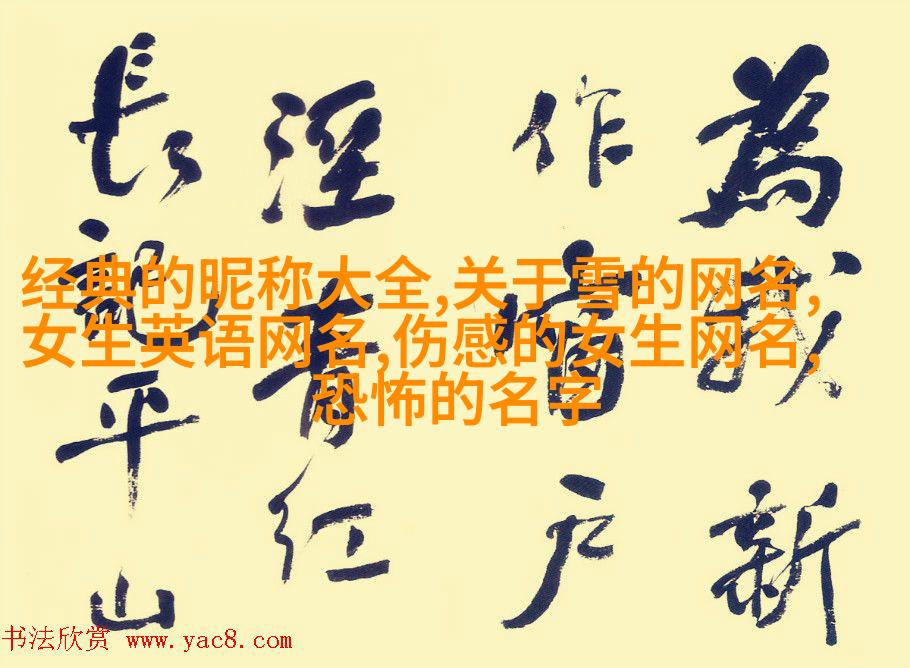 為我新
作窗户
青红
長平山
经典的昵称大全,关于雪的网名,
女生英语网名,伤感的女生网名,
恐怖的名字
书法欣赏 www.yac8.com